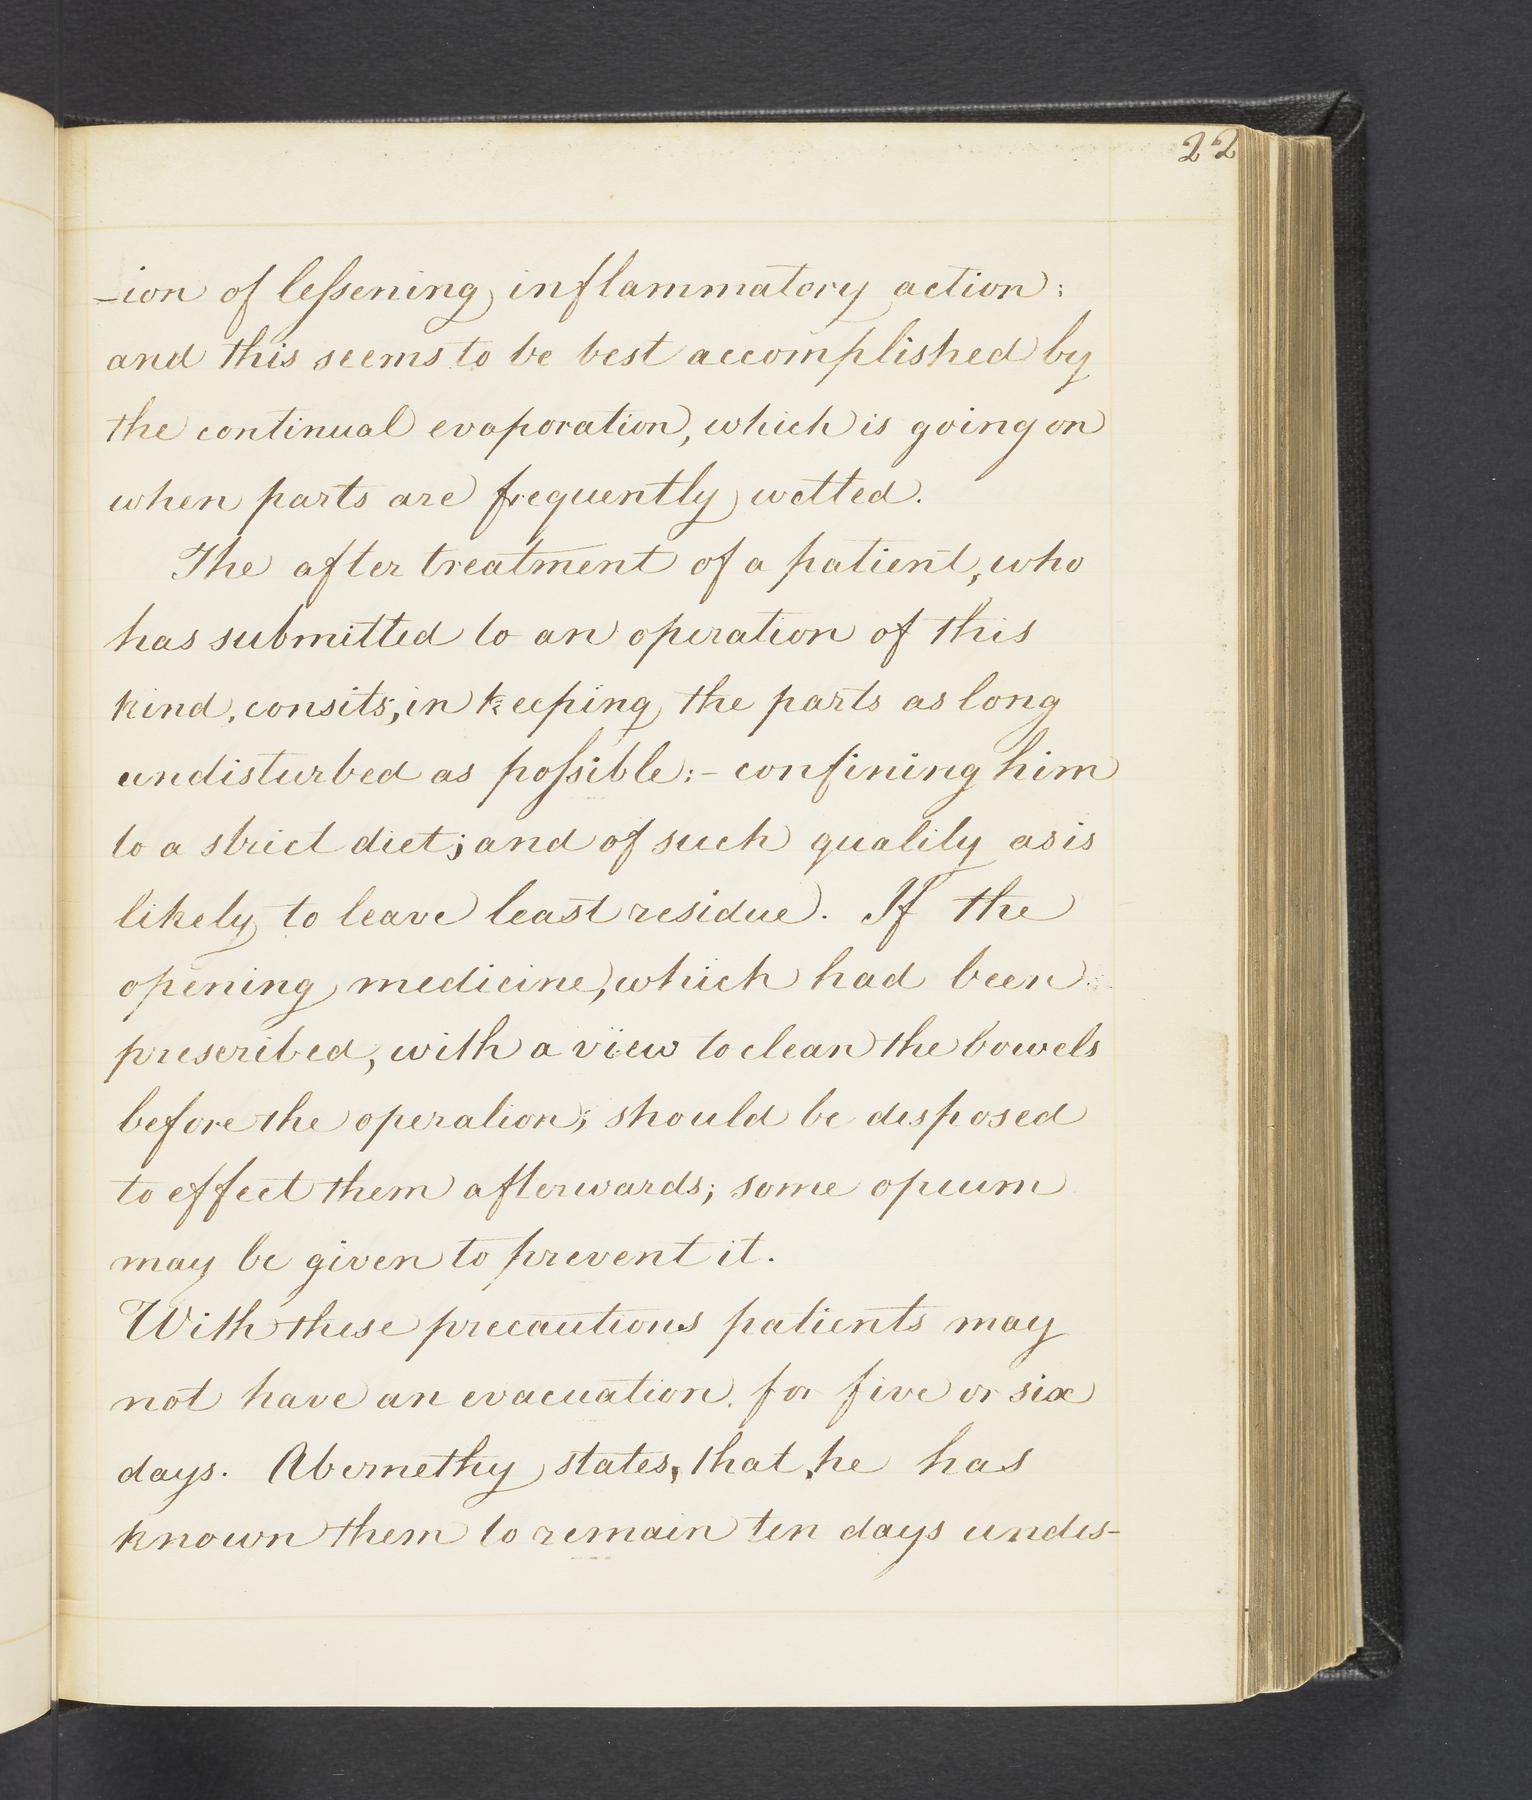 22
-ion of leſsening inflammatory action:
and this seems to be best accomplished by
the continual evaporation, which is going on
when parts are frequently wetted.
The after treatment of a patient, who
has submitted to an operation of this
kind, consits, in keeping the parts as long
undisturbed as poſsible:- confining him
to a strict diet; and of such quality as is
likely to leave least residue. If the
opening medicine, which had been
prescribed, with a view to clean the bowels
before the operation; should be disposed
to effect them afterwards; some opium
may be given to prevent it.
With these precautions patients may
not have an evacuation. for five or six
days. Abernethy states, that, he has
known them to remain ten days undis-